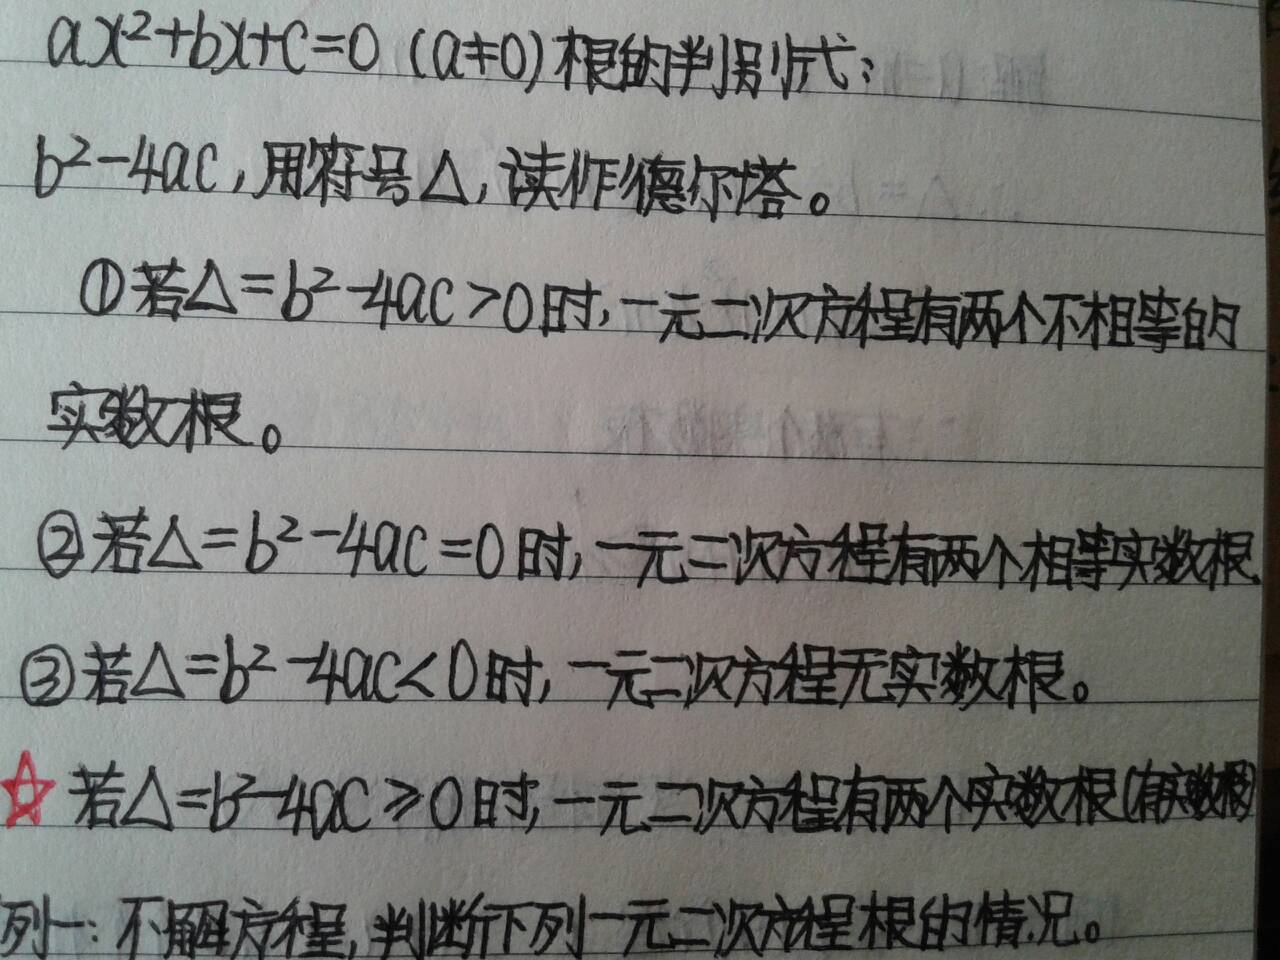 ax²+bx+c=0 (a≠0)根的判别式:
b²-4ac,用符号△,读作德尔塔。
①若△=b²-4ac>0时,一元二次方程有两个不相等的
实数根。
②若△=b²-4ac=0时,一元二次方程有两个相等实数根.
③若△=b²-4ac<0时,一元二次方程无实数根。
☆若△=b²-4ac≥0时,一元二次方程有两个实数根(有实数根)
列一:不解方程,判断下列一元二次方程根的情况。